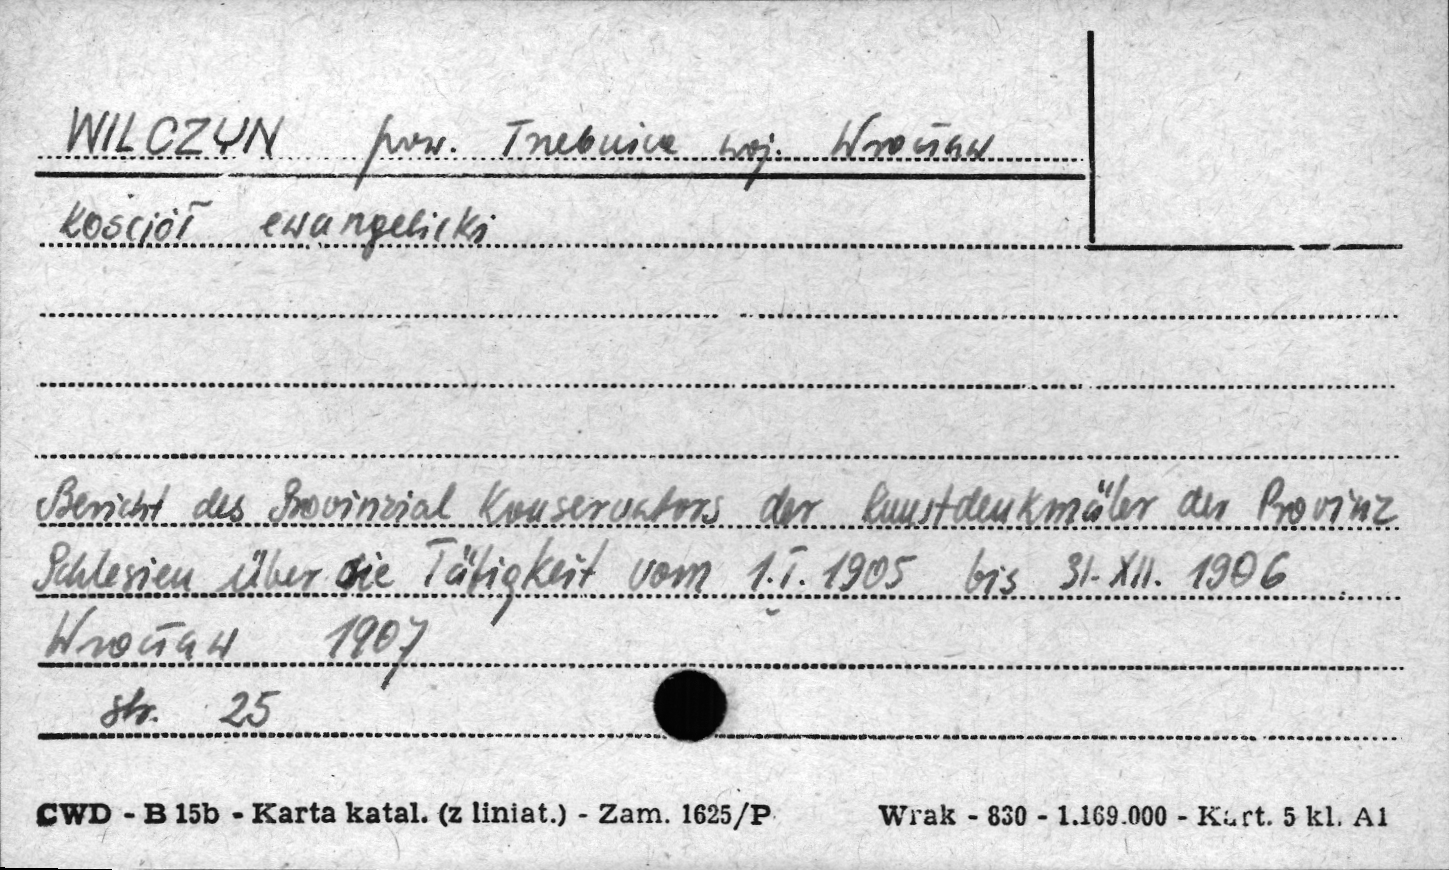 WILCZYN pow. Trzebnica woj. Wrocław
kościół ewangelicki
Bericht des Provinzial Konservators der Kunstdenkmäler der Provinz
Schlesien über die Tätigkeit vom 1.I.1905 bis 31.XII.1906
Wrocław 1907
str. 25
CWD - B 15b - Karta katal. (z liniat.) - Zam. 1625/P Wrak - 830 - 1.169.000 - Kart. 5 kl. A1